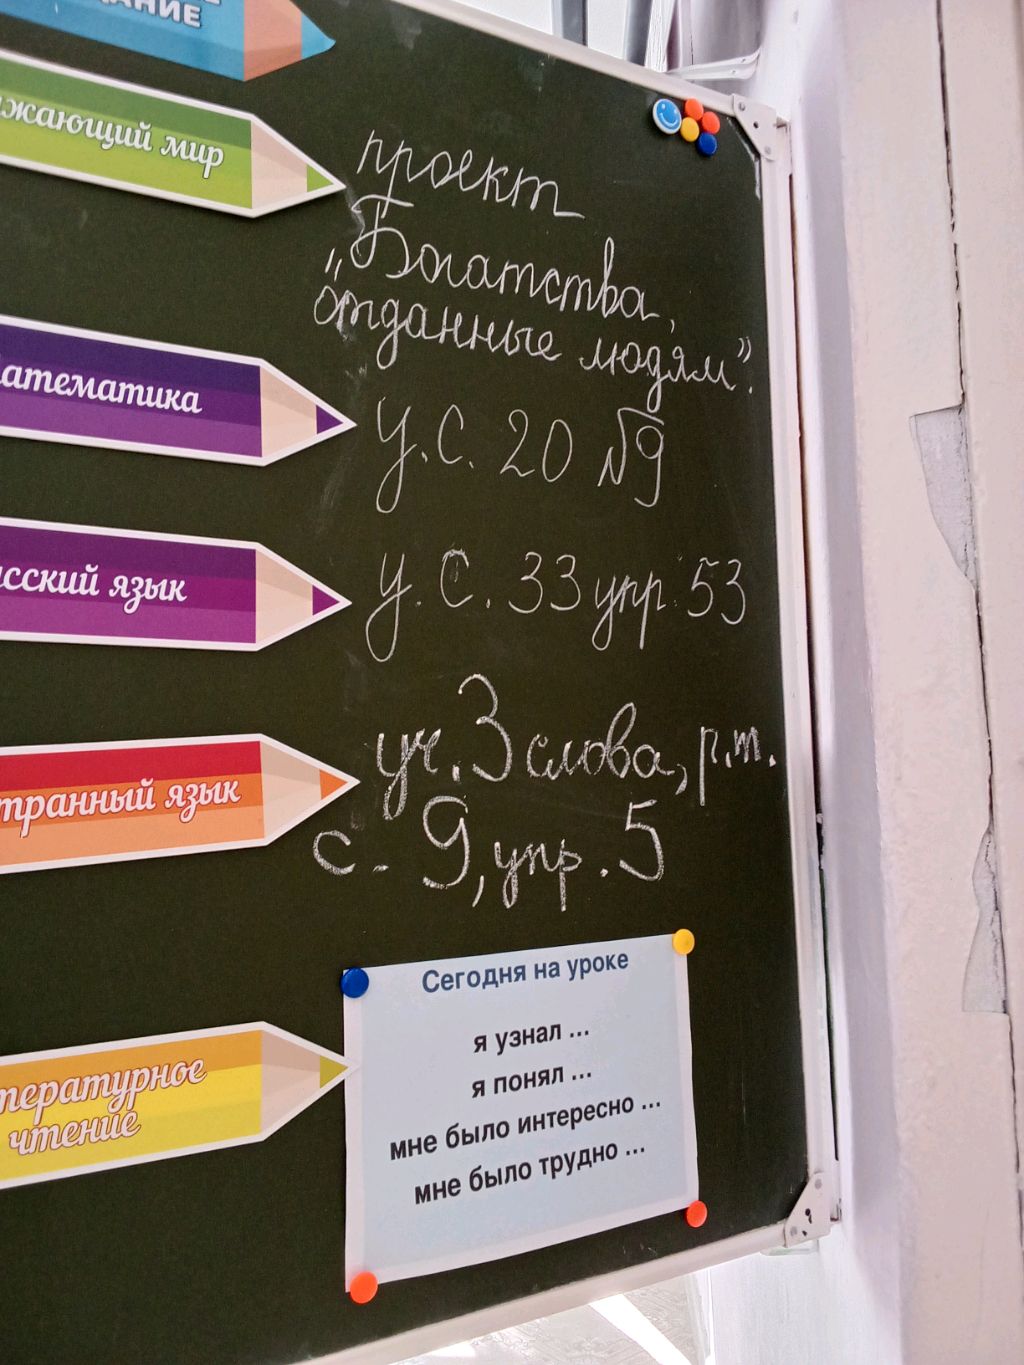 проект
„Богатства,
отданные людям".
Математика
у. с. 20 №9
Русский язык
у. с. 33 упр. 53
уч. 3 слова, р.т.
язык
с. 9, упр. 5
мир
чтение
Сегодня на уроке
я узнал ...
я понял ...
мне было интересно ...
мне было трудно ...